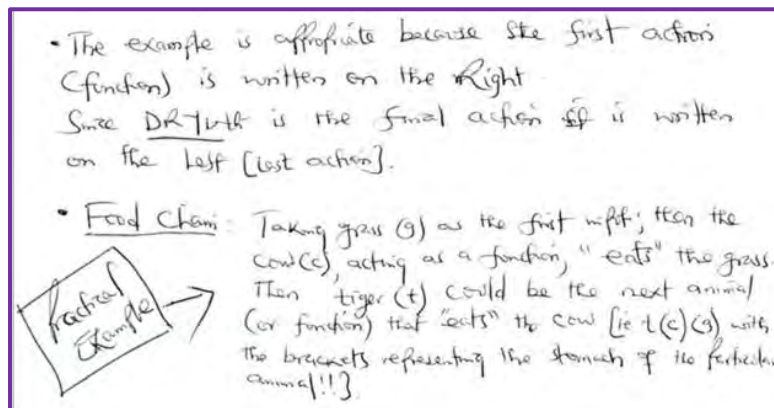 • The example is appropriate because the first action
(function) is written on the Right
Since is the final action is written
on the Left [last action].
• Food Chain: Taking grass (g) as the first input; then the
cow (c), acting as a function, "eats" the grass.
Then tiger (t) could be the next animal
(or function) that "eats" the cow [ie t(c)(g) with
the brackets representing the stomach of the particular
animal!!}
Practical
Example